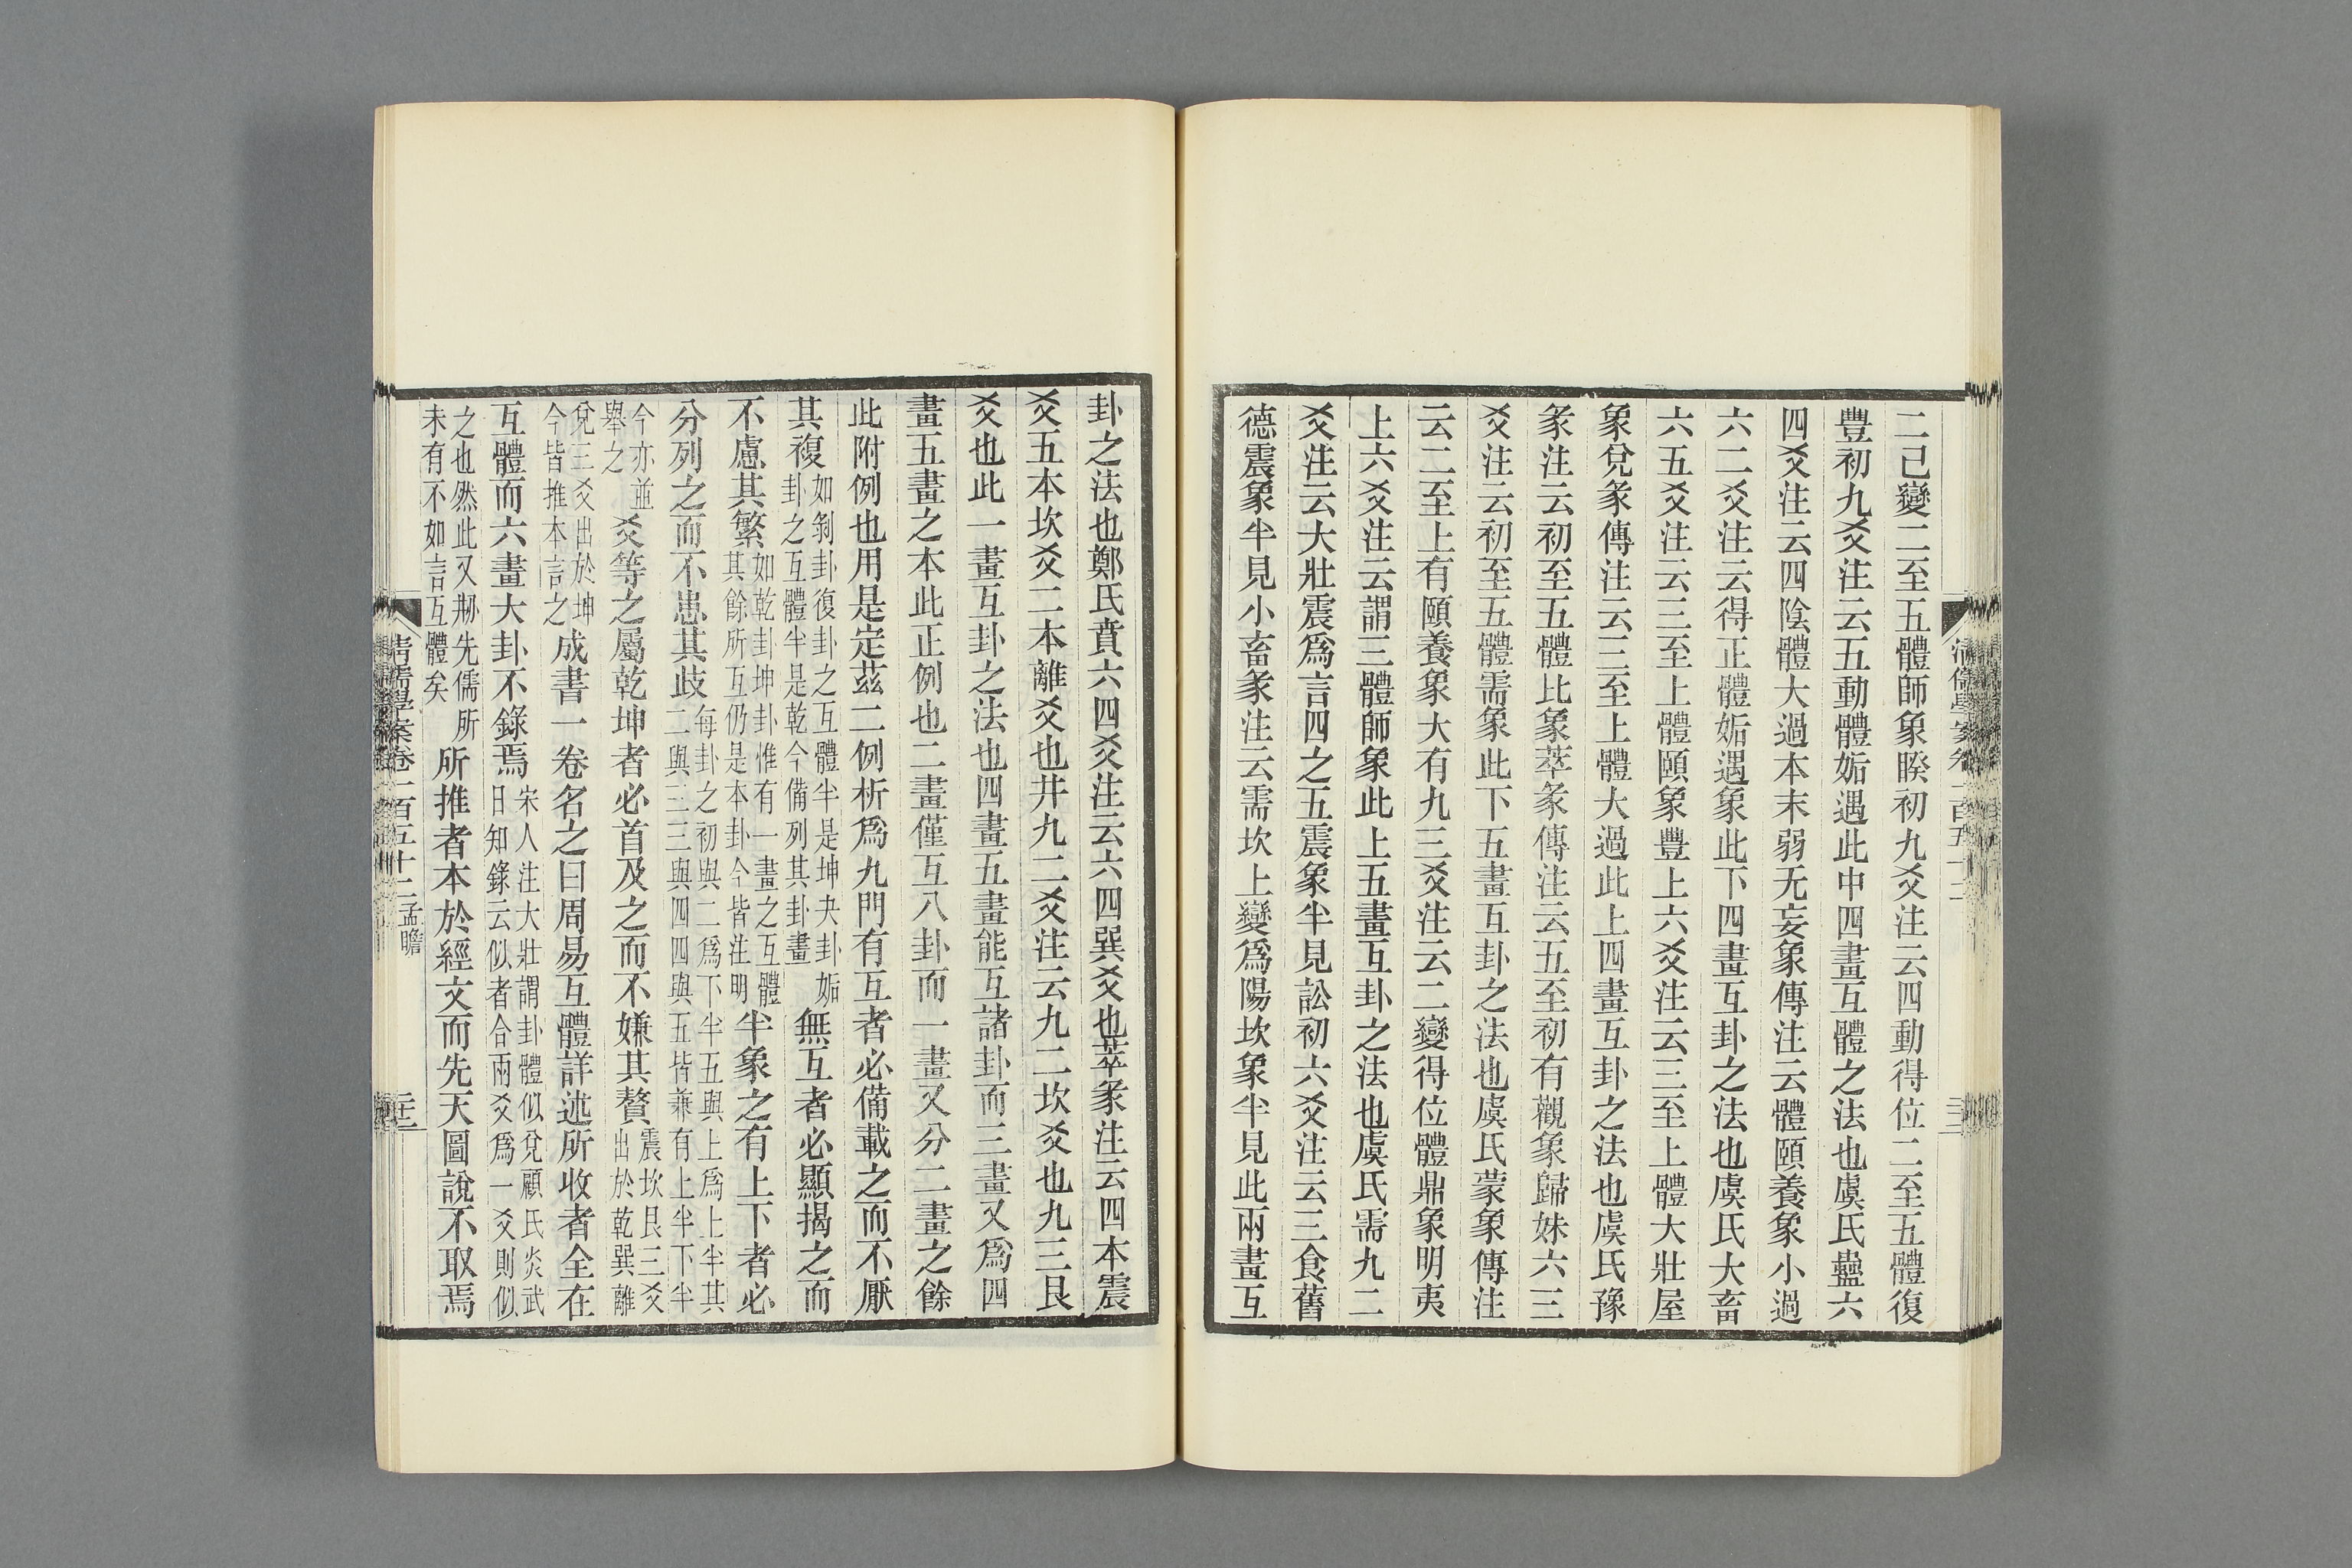 二已變二至五體師象睽初九爻注云四動得位二至五體復
豐初九爻注云五動體姤遇此中四畫互體之法也虞氏蠱六
四爻注云四陰體大過本末弱无妄彖傳注云體頤養象小過
六二爻注云得正體姤遇象此下四畫互卦之法也虞氏大畜
六五爻注云三至上體頤象豐上六爻注云三至上體大壯屋
象兌彖傳注云三至上體大過此上四畫互卦之法也虞氏豫
彖注云初至五體比象萃彖傳注云五至初有觀象歸妹六三
爻注云初至五體需象此下五畫互卦之法也虞氏蒙彖傳注
云二至上有頤養象大有九三爻注云二變得位體鼎象明夷
上六爻注云謂三體師象此上五畫互卦之法也虞氏需九二
爻注云大壯震爲言四之五震象半見訟初六爻注云三食舊
德震象半見小畜彖注云需坎上變爲陽坎象半見此兩畫互
卦之法也鄭氏賁六四爻注云六四巽爻也萃彖注云四本震
爻五本坎爻二本離爻也井九二爻注云九二坎爻也九三艮
爻也此一畫互卦之法也四畫五畫能互諸卦而三畫又爲四
畫五畫之本此正例也二畫僅互八卦而一畫又分二畫之餘
此附例也用是定茲二例析爲九門有互者必備載之而不厭
其複如剝卦復卦之互體半是坤夬卦姤卦之互體半是乾今備列其卦畫無互者必顯揭之而
不慮其繁如乾卦坤卦惟有一畫之互體其餘所互仍是本卦今皆注明半象之有上下者必
分列之而不患其歧每卦之初與二爲下半五與上爲上半其二與三三與四四與五皆兼有上半下半
今亦並舉之爻等之屬乾坤者必首及之而不嫌其贅震坎艮三爻出於乾巽離
兌三爻出於坤今皆推本言之成書一卷名之曰周易互體詳述所收者全在
互體而六畫大卦不錄焉宋人注大壯謂卦體似兌顧氏炎武日知錄云似者合兩爻爲一爻則似
之也然此又刱先儒所未有不如言互體矣所推者本於經文而先天圖說不取焉
清儒學案卷一百五十二孟瞻